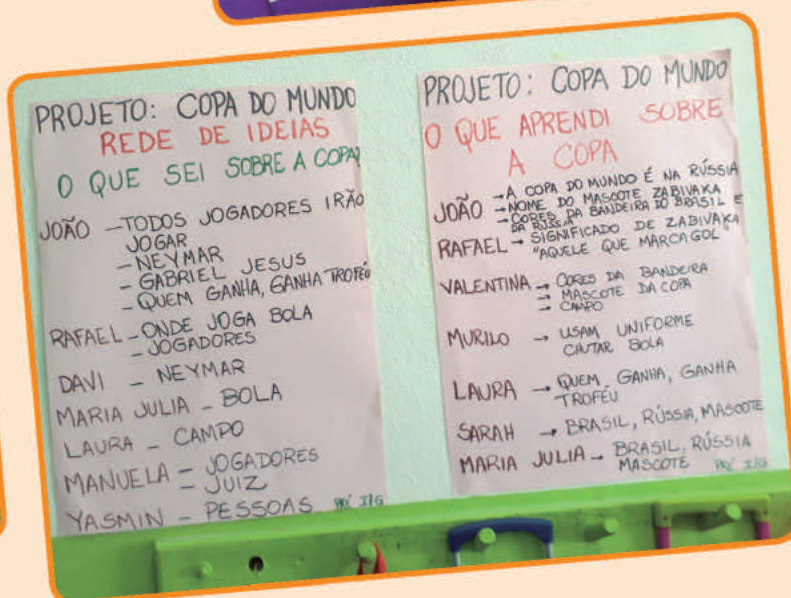 PROJETO: COPA DO MUNDO
REDE DE IDEIAS
O QUE SEI SOBRE A COPA?
JOÃO - TODOS JOGADORES IRÃO
JOGAR
- NEYMAR
- GABRIEL JESUS
- QUEM GANHA, GANHA TROFÉU
RAFAEL - ONDE JOGA BOLA
- JOGADORES
DAVI - NEYMAR
MARIA JULIA - BOLA
LAURA - CAMPO
MANUELA - JOGADORES
- JUIZ
YASMIN - PESSOAS PRÉ I/G
PROJETO: COPA DO MUNDO
O QUE APRENDI SOBRE
A COPA
JOÃO → A COPA DO MUNDO É NA RÚSSIA
→ NOME DO MASCOTE ZABIVAKA
→ CORES DA BANDEIRA DO BRASIL E
DA RÚSSIA
RAFAEL → SIGNIFICADO DE ZABIVAKA
"AQUELE QUE MARCA GOL"
VALENTINA → CORES DA BANDEIRA
→ MASCOTE DA COPA
→ CAMPO
MURILO → USAM UNIFORME
CHUTAR BOLA
LAURA → QUEM GANHA, GANHA
TROFÉU
SARAH → BRASIL, RÚSSIA, MASCOTE
MARIA JULIA → BRASIL, RÚSSIA
MASCOTE PRÉ I/G